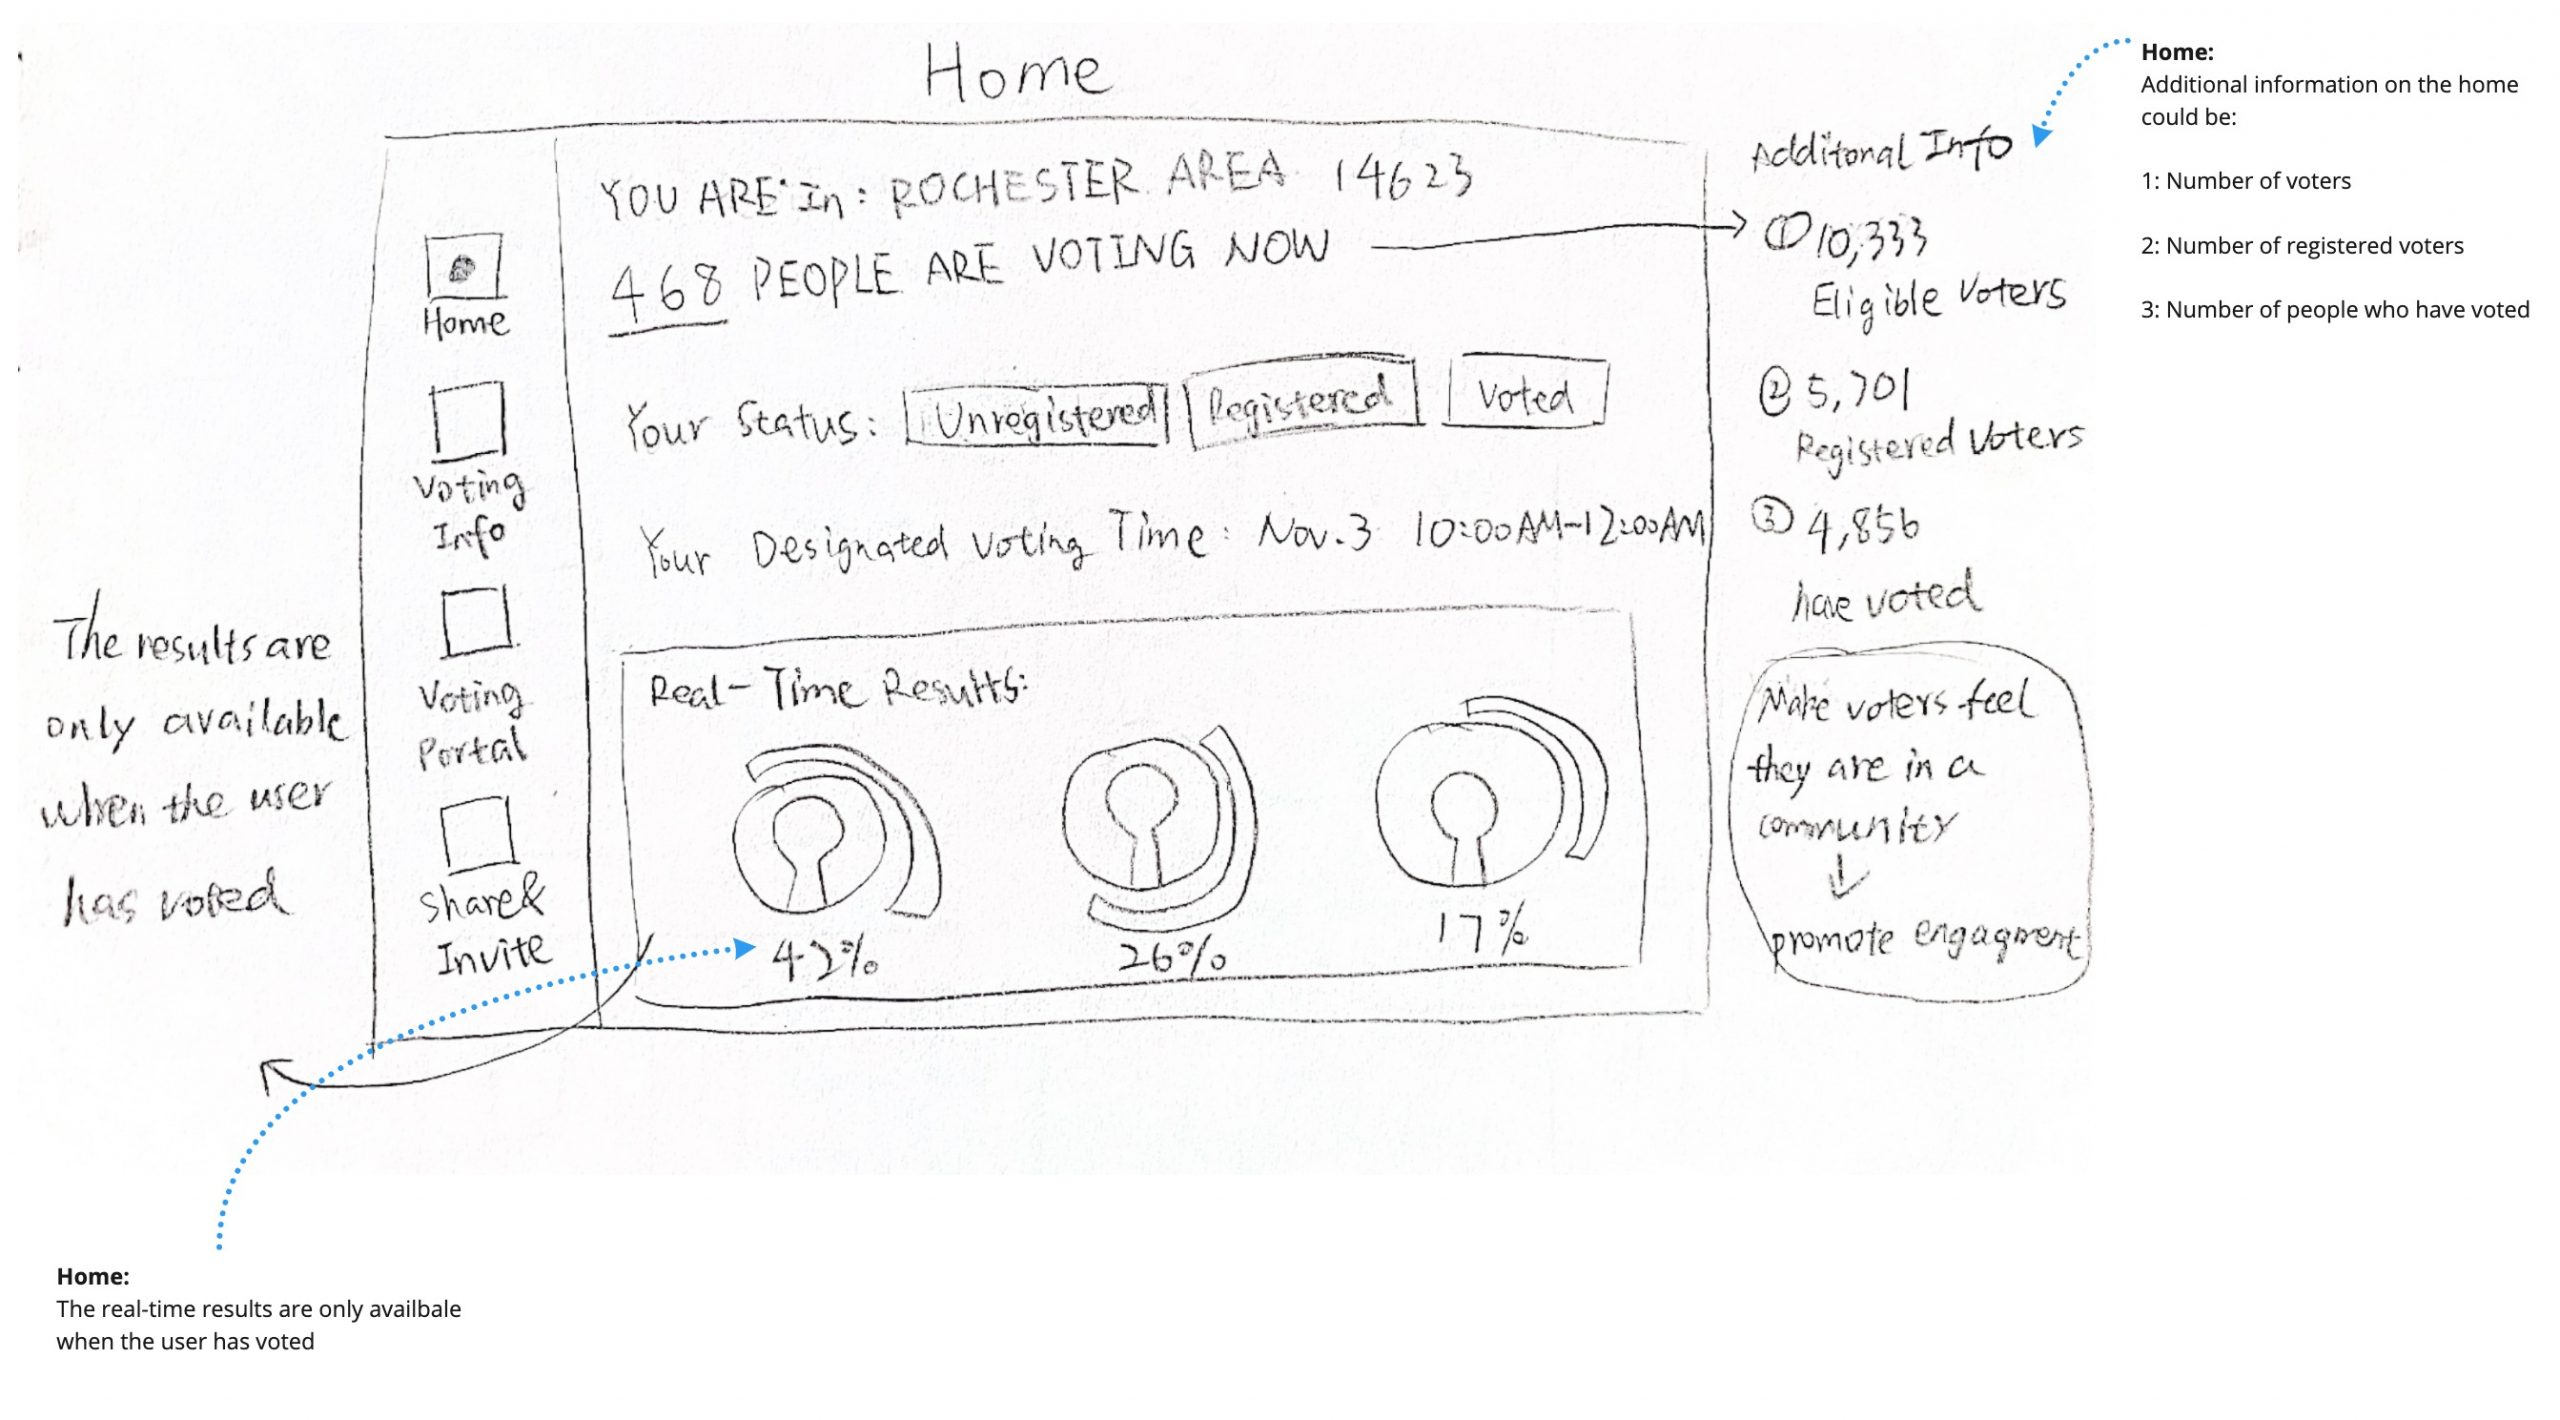 Home
YOU ARE In: ROCHESTER AREA 14623
468 PEOPLE ARE VOTING NOW
Your Status: Unregistered Registered Voted
Your Designated Voting Time: Nov.3 10:00AM-12:00AM
Real-Time Results:
42%
26%
17%
Home
Voting
Info
Voting
Portal
Share&
Invite
The results are
only available
when the user
has voted
Additonal Info
① 10,333
Eligible Voters
② 5,701
Registered Voters
③ 4,856
have voted
Make voters feel
they are in a
community
promote engagment
Home:
Additional information on the home
could be:
1: Number of voters
2: Number of registered voters
3: Number of people who have voted
Home:
The real-time results are only availbale
when the user has voted